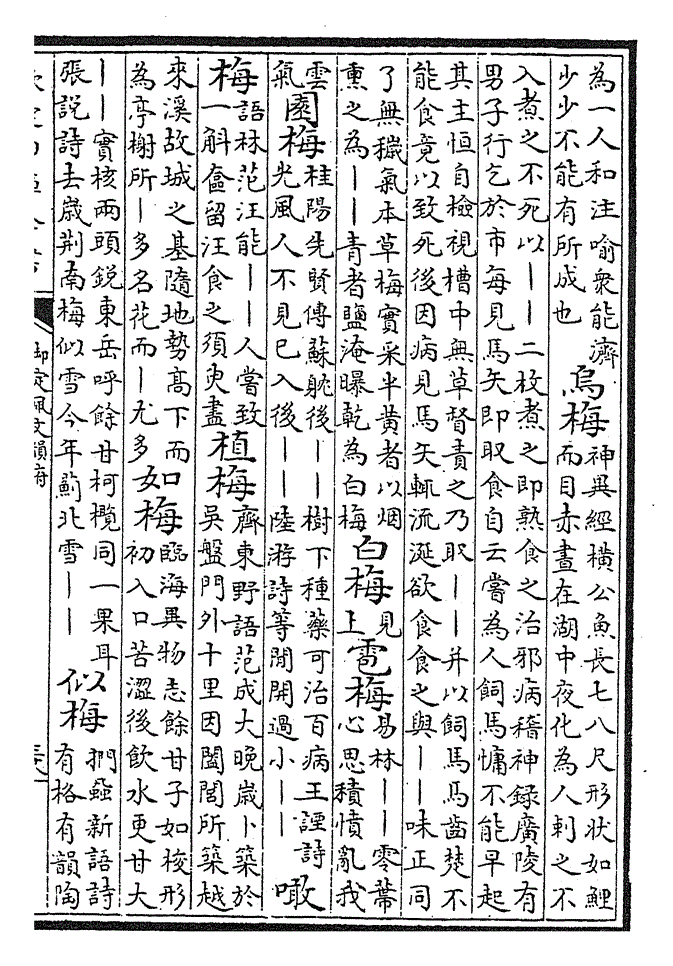 為一人和注喻衆能濟
少少不能有所成也
烏梅
神異經橫公魚長七八尺形狀如鯉
而目赤晝在湖中夜化為人刺之不
入煮之不死以——二枚煮之即熟食之治邪病稽神錄廣陵有
男子行乞於市每見馬矢即取食自云嘗為人飼馬慵不能早起
其主恒自檢視槽中無草督責之乃取——并以飼馬馬齒楚不
能食竟以致死後因病見馬矢輒流涎欲食食之與——味正同
了無穢氣本草梅實采半黃者以烟
熏之為——青者鹽淹曝乾為白梅
白梅
見
上
雹梅
易林——零蔕
心思積憤亂我
雲
氣
園梅
桂陽先賢傳蘇躭後——樹下種藥可治百病王諲詩
光風人不見已入後——陸游詩等閒開過小——
噉
梅
語林范汪能——人嘗致
一斛奩留汪食之須臾盡
植梅
齊東野語范成大晚歲卜築於
吳盤門外十里因闔閭所築越
來溪故城之基隨地勢高下而
為亭榭所—多名花而—尤多
如梅
臨海異物志餘甘子如梭形
初入口苦澀後飲水更甘大
——實核兩頭銳東岳呼餘甘柯欖同一果耳
張說詩去歲荆南梅似雪今年薊北雪——
似梅
捫蝨新語詩
有格有韻陶
御定佩文韻府